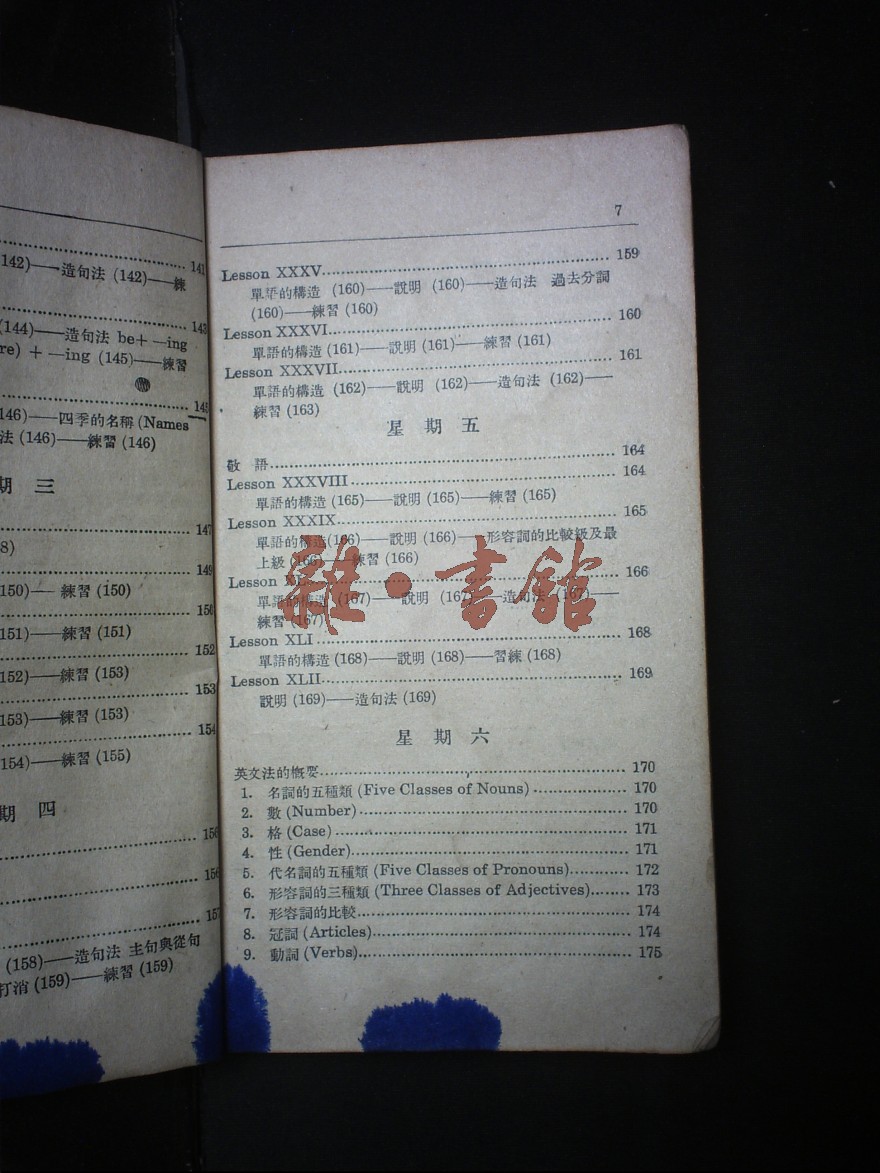 141
142)——造句法 (142)——練
143
(144)——造句法 be+ —ing
re) + —ing (145)——練習
145
146)——四季的名稱 (Names
法 (146)——練習 (146)
期 三
147
8)
149
150)—— 練習 (150)
150
151)——練習 (151)
152
152)——練習 (153)
153
153)——練習 (153)
154
154)——練習 (155)
期 四
156
156
157
(158)——造句法 主句與從句
打消 (159)——練習 (159)
7
Lesson XXXV 159
單語的構造 (160)——說明 (160)——造句法 過去分詞
(160)——練習 (160)
Lesson XXXVI 160
單語的構造 (161)——說明 (161)——練習 (161)
Lesson XXXVII 161
單語的構造 (162)——說明 (162)——造句法 (162)——
練習 (163)
星 期 五
敬 語 164
Lesson XXXVIII 164
單語的構造 (165)——說明 (165)——練習 (165)
Lesson XXXIX 165
單語的構造(166)——說明 (166)——形容詞的比較級及最
上級 (166)——練習 (166)
Lesson XL 166
單語的構造 (167)——說明 (167)——造句法 (167)——
練習 (167)
Lesson XLI 168
單語的構造 (168)——說明 (168)——習練 (168)
Lesson XLII 169
說明 (169)——造句法 (169)
星 期 六
英文法的概要 170
1. 名詞的五種類 (Five Classes of Nouns) 170
2. 數 (Number) 170
3. 格 (Case) 171
4. 性 (Gender) 171
5. 代名詞的五種類 (Five Classes of Pronouns) 172
6. 形容詞的三種類 (Three Classes of Adjectives) 173
7. 形容詞的比較 174
8. 冠詞 (Articles) 174
9. 動詞 (Verbs) 175
雜·書館